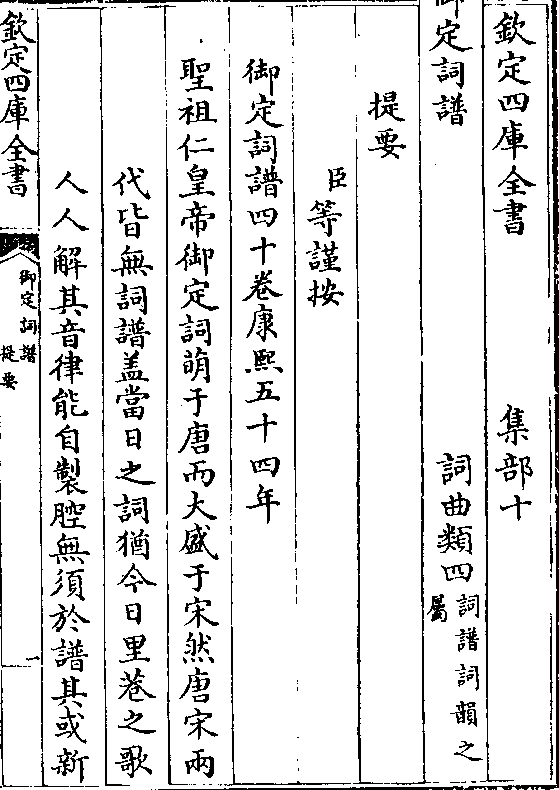 欽定四庫全書 集部十
御定詞譜 詞曲類四 詞譜詞韻之屬
提要
臣等謹按
御定詞譜四十卷康熙五十四年
聖祖仁皇帝御定詞萌于唐而大盛于宋然唐宋兩
代皆無詞譜盖當日之詞猶今日里巷之歌
人人解其音律能自製腔無須於譜其或新
欽定四庫全書
御定詞譜
提要
一